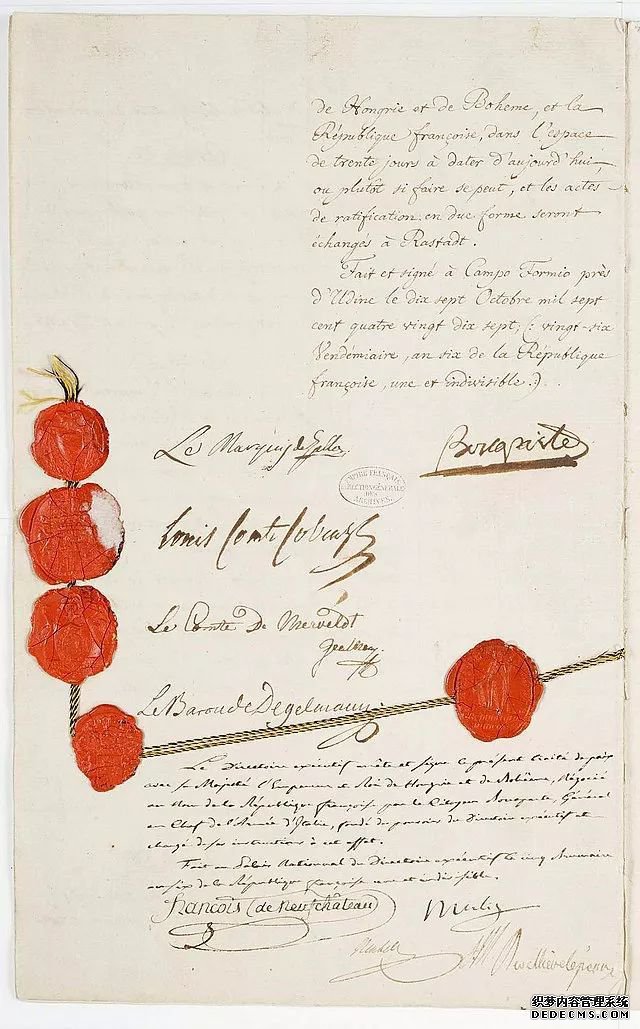 de Hongrie et de Boheme, et la
République françoise, dans l'espace
de trente jours à dater d'aujourd'hui,
ou plutôt si faire se peut, et les actes
de ratification en due forme seront
échangés à Rastadt.
Fait et signé à Campo Formio près
d'Udine le dix sept Octobre mil sept
cent quatre vingt dix sept; (: vingt-six
Vendémiaire, an six de la République
françoise, une et indivisible.)
Le Marquis de Gallo.
Bonaparte
EMPIRE FRANÇAIS
DIRECTION GÉNÉRALE
DES
ARCHIVES.
Louis Comte Cobenzl
Le Comte De Merveldt
General
Le Baron de Degelmann
Le Directoire exécutif arrête et signe le présent traité de paix
avec sa Majesté l'Empereur et Roi de Hongrie et de Bohême, Négocié
au Nom de la République françoise par le Citoyen Bonaparte, Général
en Chef de l'Armée d'Italie, fondé de pouvoirs du Directoire exécutif et
chargé de ses instructions à cet effet.
Fait au Palais National du Directoire exécutif le cinq Brumaire
an six de la République françoise une et indivisible.
François (de Neufchâteau)
Merlin
Rewbell
Revellière-lépeaux
织梦内容管理系统
DEDECMS.COM